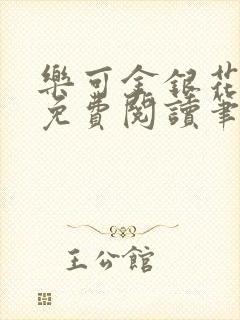 樂可金銀花
免費閱讀筆
王公館